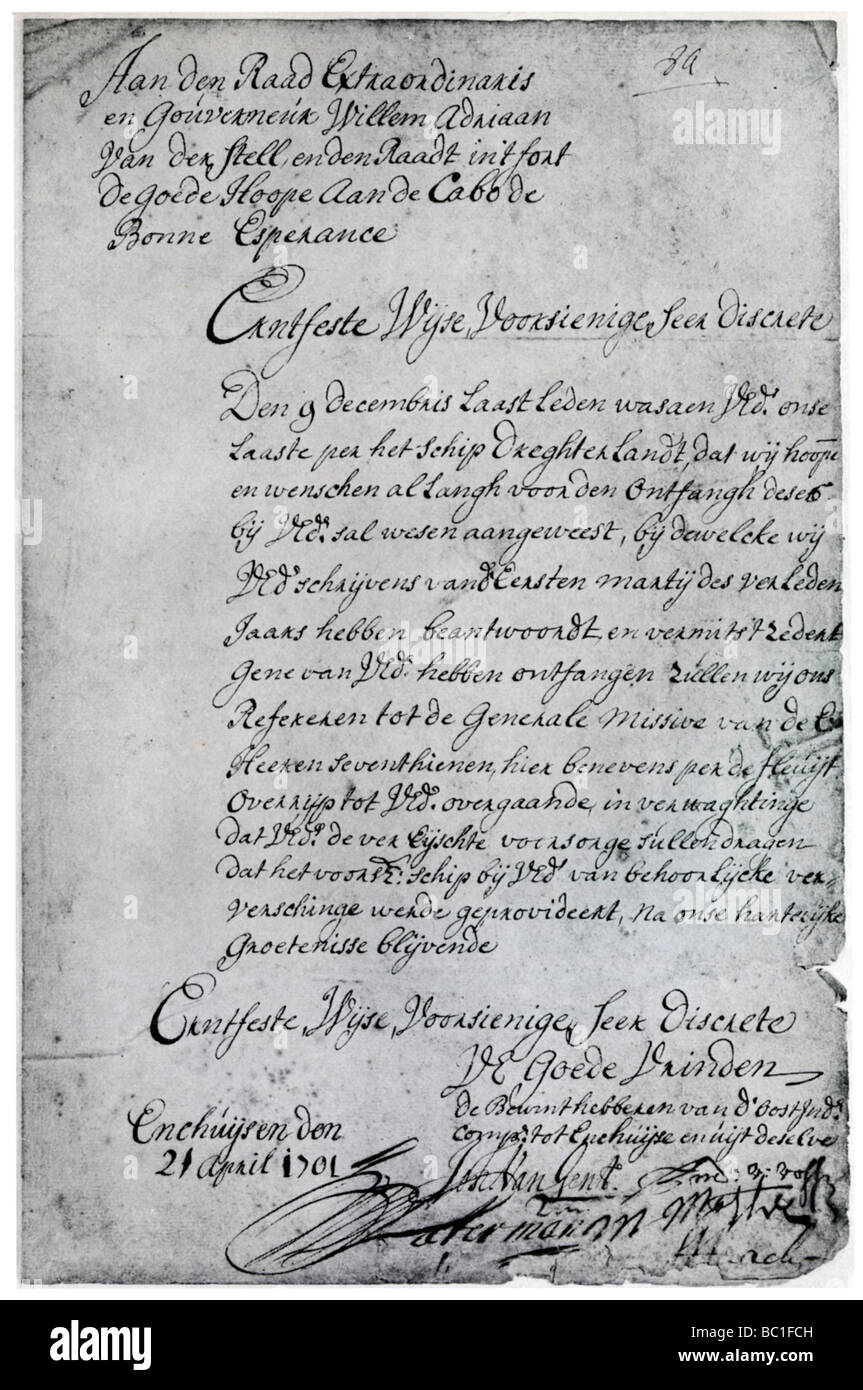 89
Aan den Raad Extraordinaris
en Gouverneur Willem Adriaan
Van der Stell, en den Raadt int fort
De goede Hoope Aan de Cabo de
Bonne Esperance
Erntfeste Wijse, Voorsienige, Seer Discrete
Den 9 decembris Laast Leden was aen VEds. onse
Laaste per het schip Dreghterlandt, dat wij hoope
en wenschen al Langh voor den Ontfangh deses
bij VEds. sal wesen aangeweest, bij dewelcke wij
VEds schrijvens vandEersten martij des verleden
Jaars hebben beantwoordt, en vermits't zedert
Gene van VEds. hebben ontfangen zullen wij ons
Refereren tot de Generale Missive van de E
Heeren seventhienen, hier benevens per de fleuijt
Overrijp tot VEds. overgaande, in verwaghtinge
dat VEds. de ver Eijschte voorsorge sullen dragen
dat het voorsz: schip bij VEds van behoorlijcke ver-
verschinge werde geprovideert, Na onse hartelijke
Groetenisse blijvende
Erntfeste, Wijse, Voorsienige, Seer Discrete
VE Goede Vrinden
De Bewinthebberen van d'Oost Inds.
Comps. tot Enchuijse en uijt deselve
Enchuijsen den
21 April 1701
van Gent.
alamy
Image ID: BC1FCH
www.alamy.com